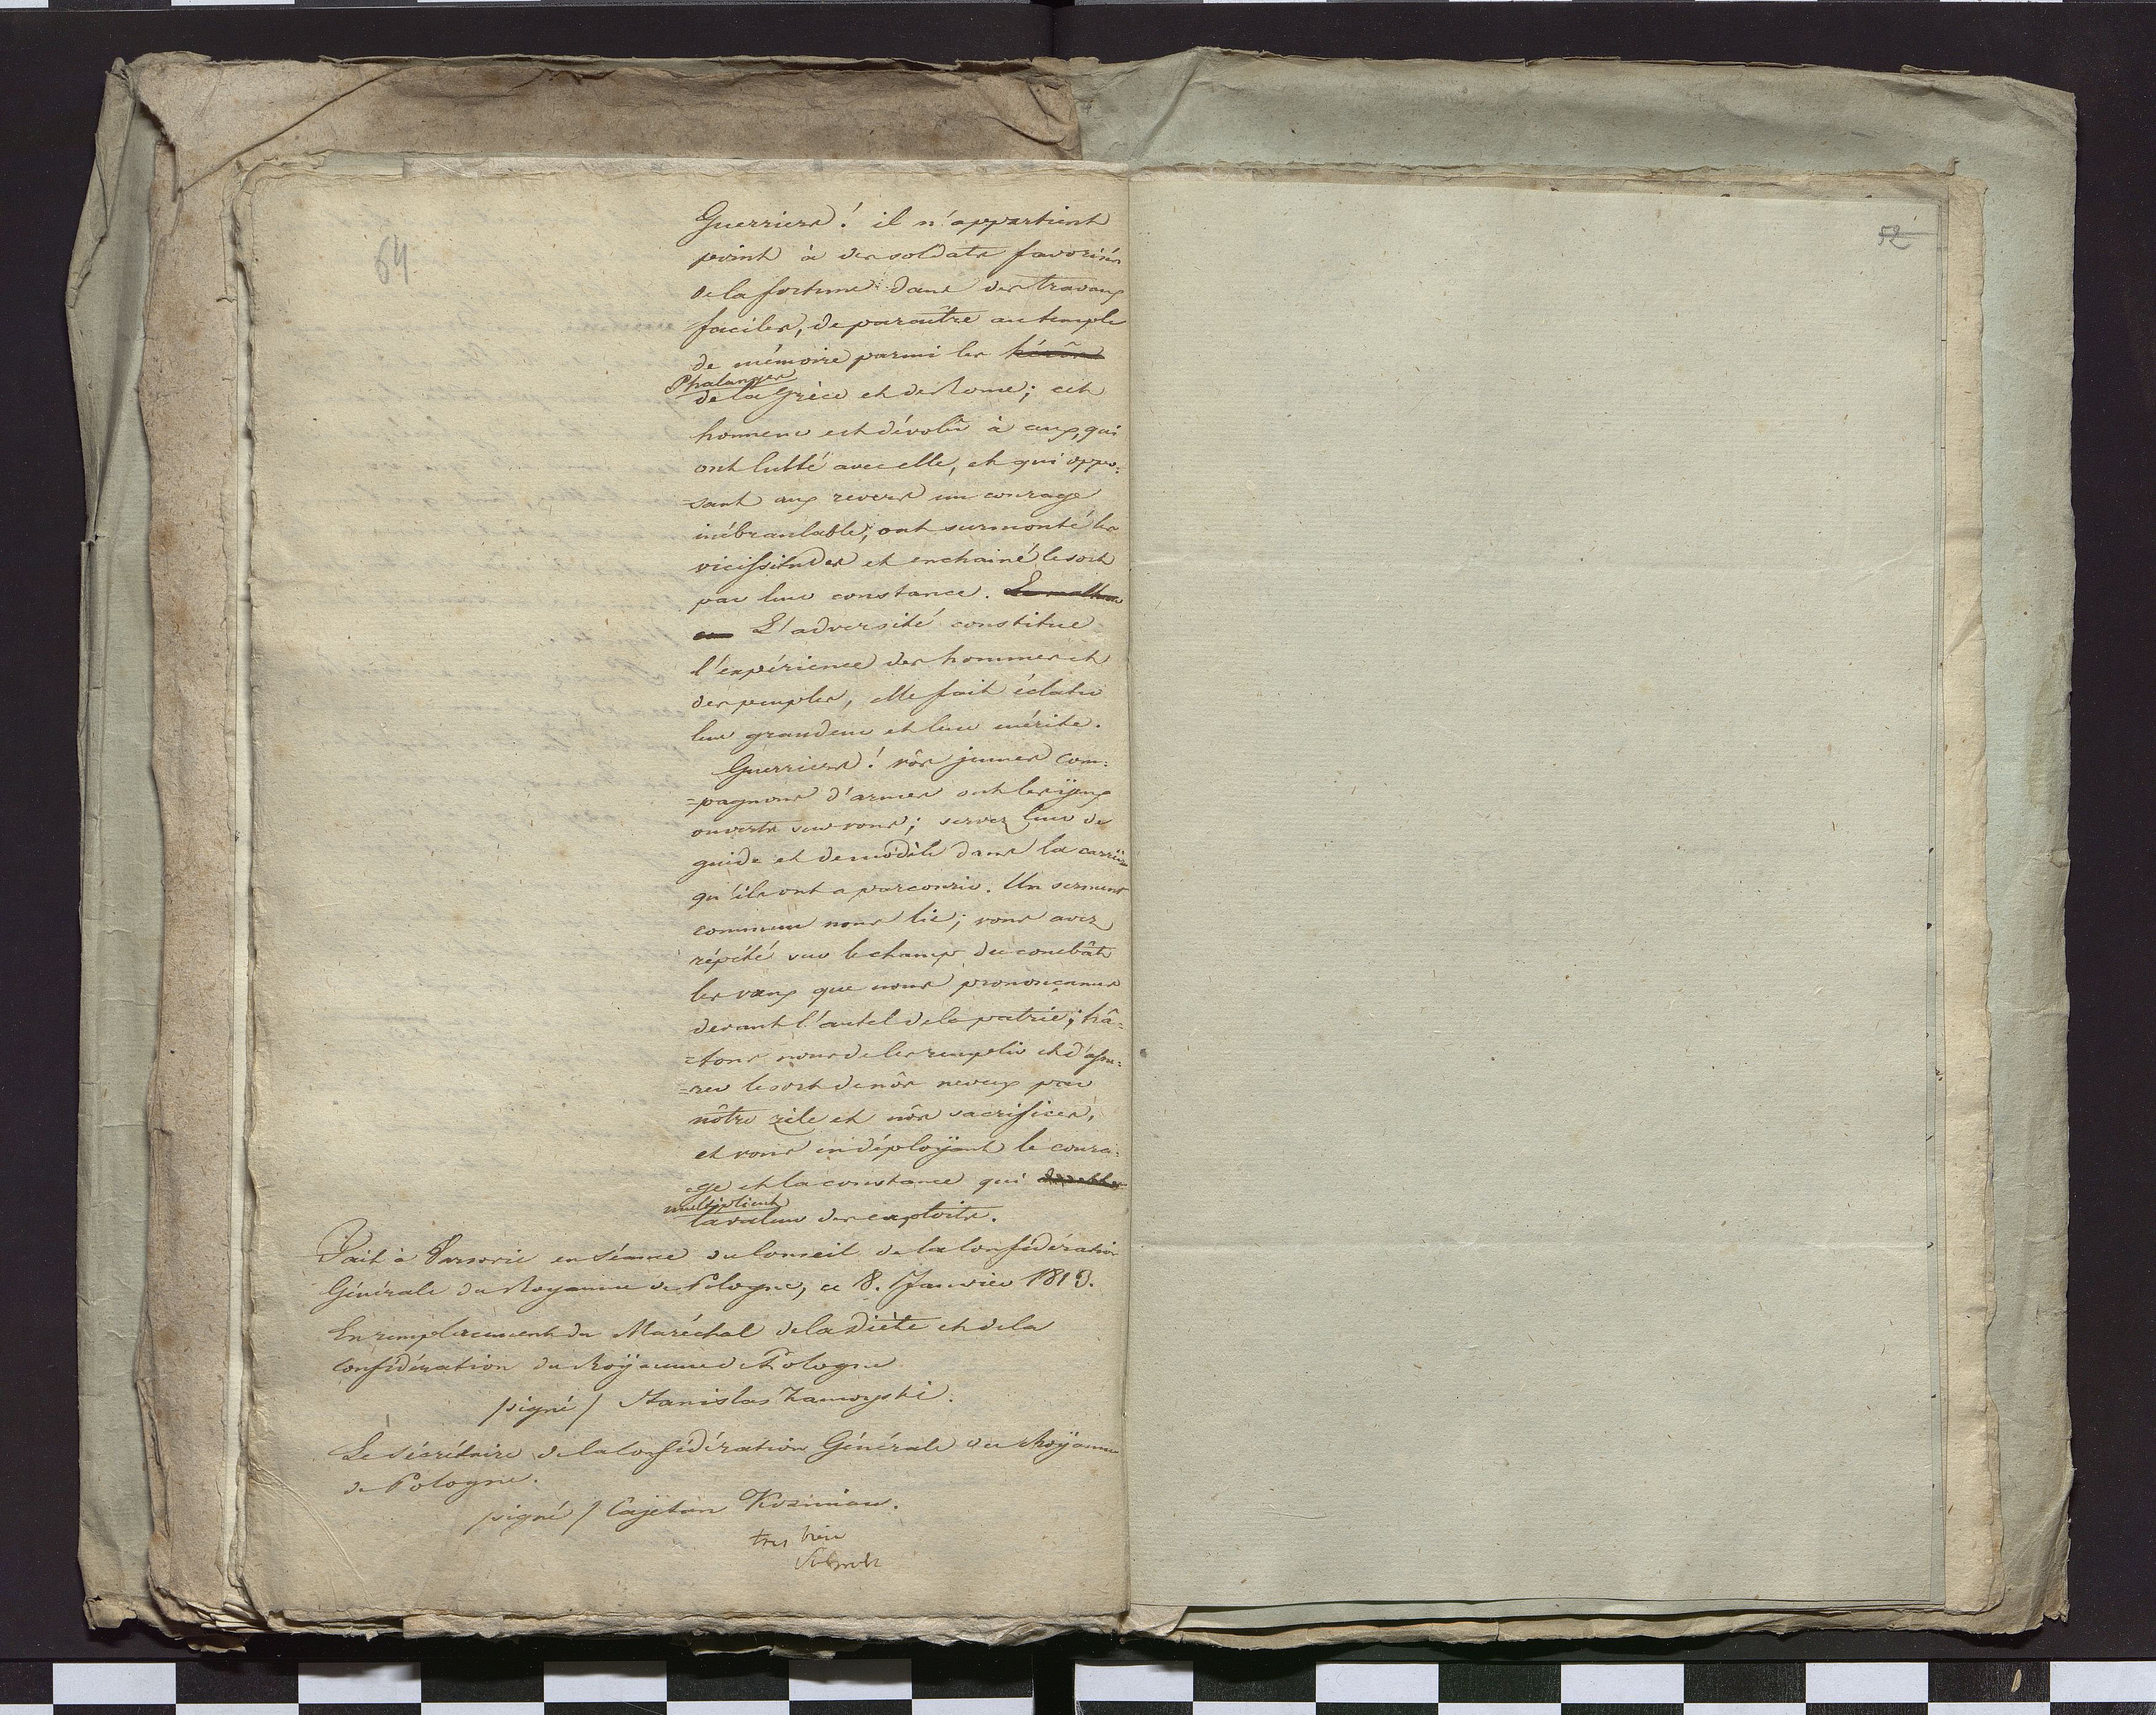 64
Guerriers! il n'appartient
point à des soldats favorisés
de la fortune dans des travaux
faciles, de paraître au temple
de mémoire parmi les héros
Phalanges
de la Grèce et de Rome; cet
honneur est dévolû à ceux, qui
ont lutté avec elle, et qui oppo-
=sant aux revers un courage
inébranlable, ont surmonté les
vicissitudes et enchainé le sort
par leur constance. Le malheur
L'adversité constitue
l'expérience des hommes et
des peuples, elle fait éclater
leur grandeur et leur mérite.
Guerriers! vôs jeunes com=
=pagnons d'armes ont les ÿeux
ouverts sur vous; servez leur de
guide et de modèle dans la carrière
qu'ils ont a parcourir. Un serment
commun nous lie; vous avez
répété sur le champ du combât
les vœux que nous prononçames
devant l'autel de la patrie; hâ=
=tons nous de les remplir et d'assu=
=rer le sort de nôs neveux par
nôtre zèle et nôs sacrifices,
et vous en déploÿant le coura=
=ge et la constance qui
multiplient
la valeur des exploits.
Fait à Varsovie en Séance du Conseil de la Confédération
Générale du Royaume de Pologne, ce 8. Janvier 1813.
En remplacement du Maréchal de la Diète et de la
Confédération du Roÿaume de Pologne
/signé/ Stanislas Zamoyski.
Le Sécrétaire de la Confédération Générale du Roÿaume
de Pologne.
/signé/ Cajetan Kozmian.
tres bien
52